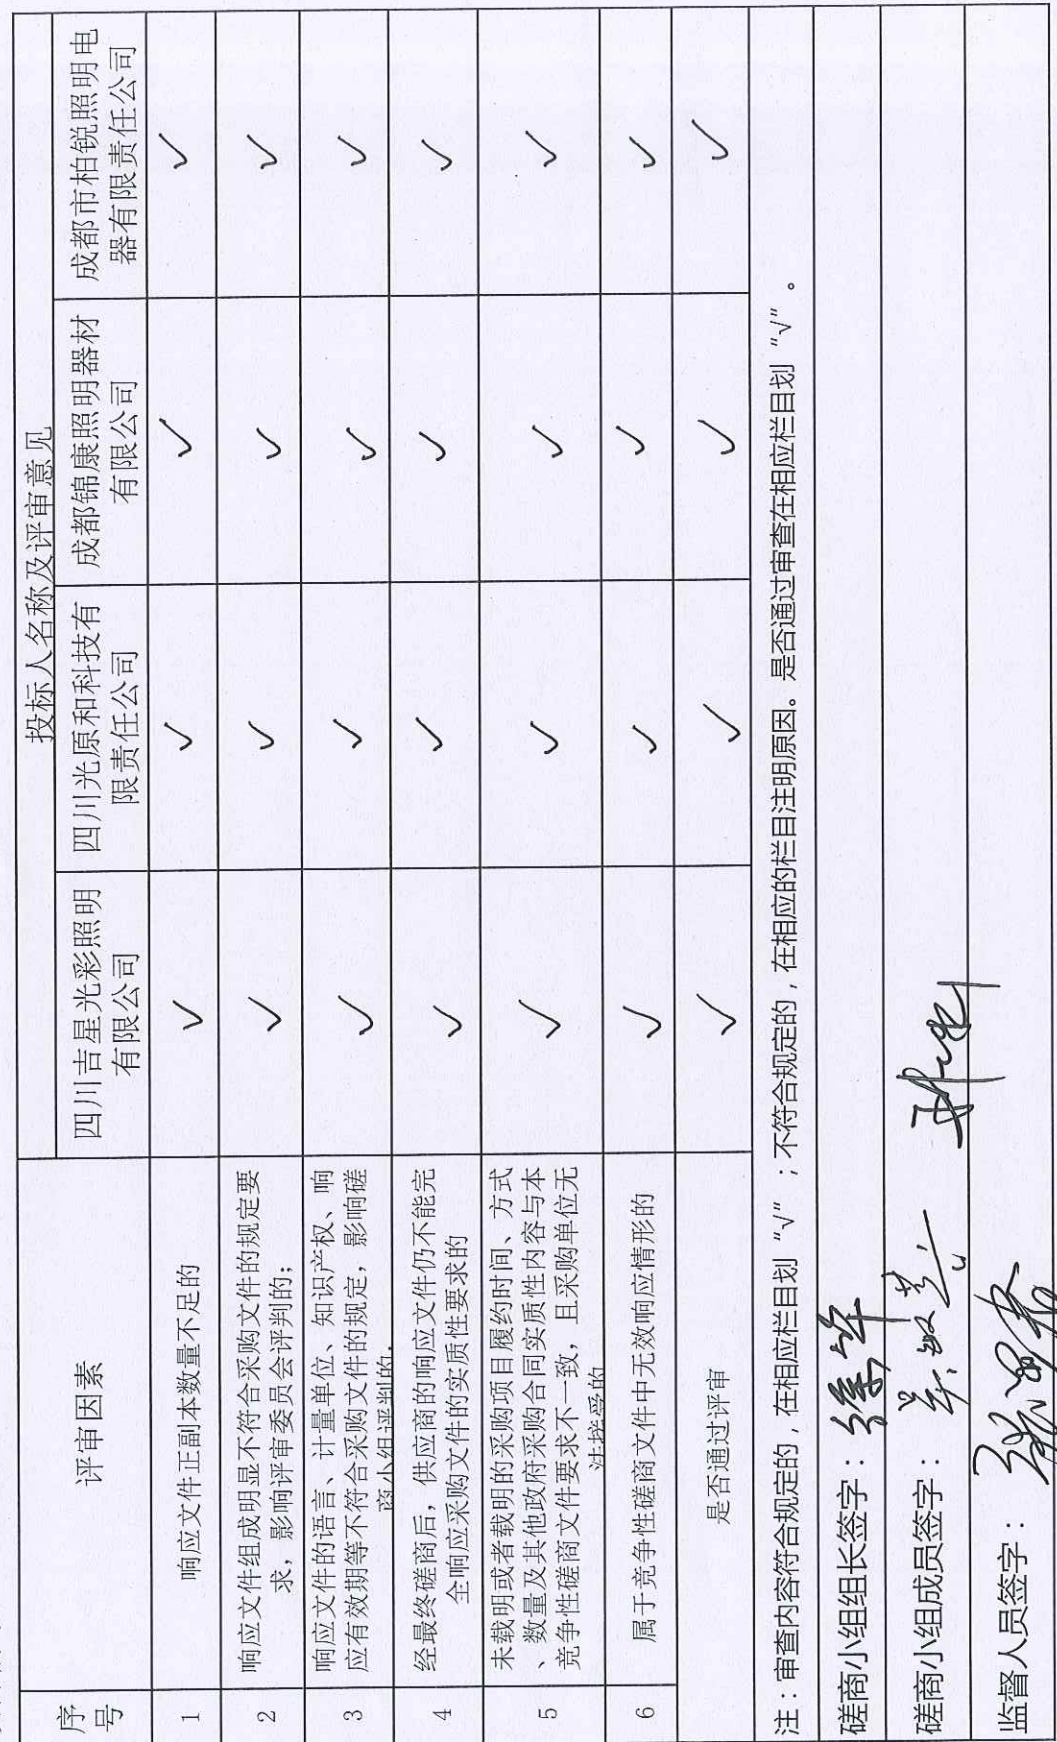 投标人名称及评审意见
序号
评审因素
四川吉星光彩照明
有限公司
四川光原和科技有
限责任公司
成都锦康照明器材
有限公司
成都市柏锐照明电
器有限责任公司
1
响应文件正副本数量不足的
✓ ✓ ✓ ✓
2
响应文件组成明显不符合采购文件的规定要
求，影响评审委员会评判的；
✓ ✓ ✓ ✓
3
响应文件的语言、计量单位、知识产权、响
应有效期等不符合采购文件的规定，影响磋
商小组评判的.
✓ ✓ ✓ ✓
4
经最终磋商后，供应商的响应文件仍不能完
全响应采购文件的实质性要求的
✓ ✓ ✓ ✓
5
未载明或者载明的采购项目履约时间、方式
、数量及其他政府采购合同实质性内容与本
竞争性磋商文件要求不一致，且采购单位无
法接受的
✓ ✓ ✓ ✓
6
属于竞争性磋商文件中无效响应情形的
✓ ✓ ✓ ✓
是否通过评审
✓ ✓ ✓ ✓
注：审查内容符合规定的，在相应栏目划“√”；不符合规定的，在相应的栏目注明原因。是否通过审查在相应栏目划“√”。
磋商小组组长签字：
磋商小组成员签字：
监督人员签字：